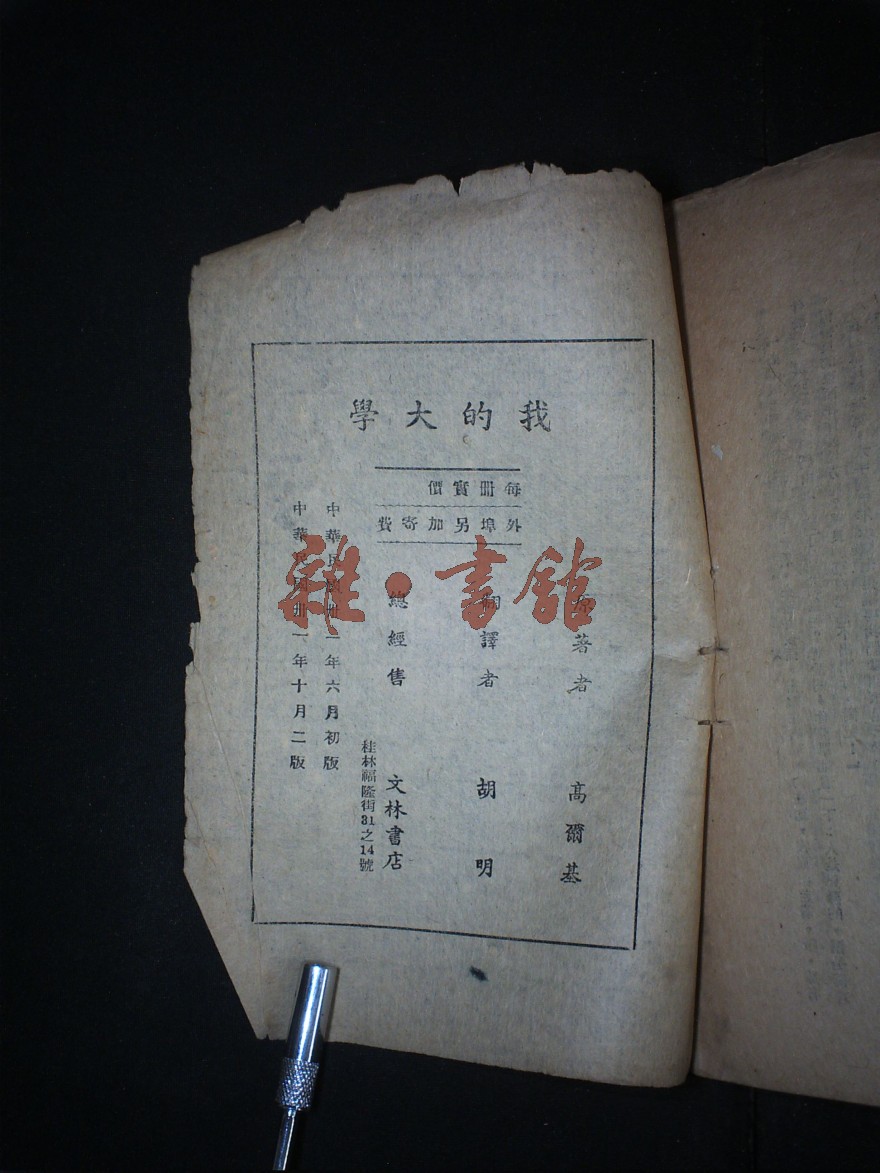 我的大學
每冊實價
外埠另加寄費
原著者 高爾基
翻譯者 胡明
總經售 文林書店
桂林福隆街31之14號
中華民國卅一年六月初版
中華民國卅一年十月二版
雜·書館